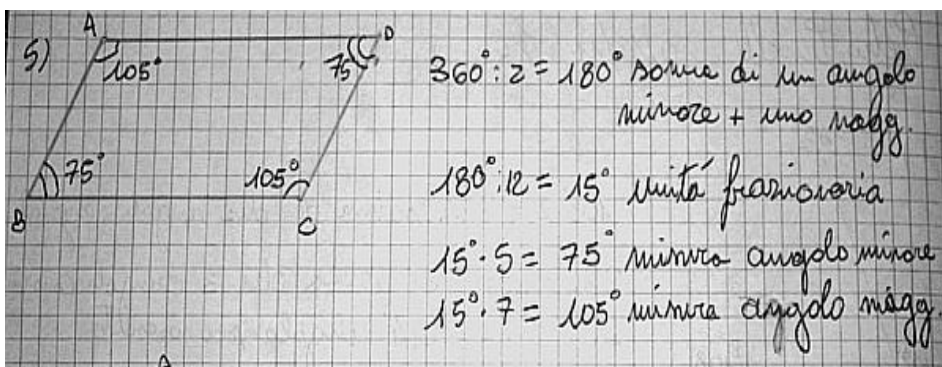 5)
A
D
105°
75
75°
105°
B
C
360° : 2 = 180° somma di un angolo
minore + uno magg.
180° : 12 = 15° unità frazionaria
15° · 5 = 75° misura angolo minore
15° · 7 = 105° misura angolo magg.